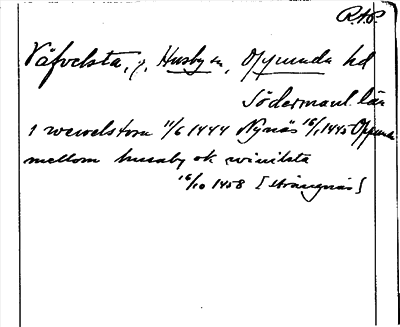 RAP
Väfvelsta, g. Husby sn, Oppunda hd
Södermanl. län
i wewelstom 11/6 1444 Nynäs 16/1 1445 Oppunda
mellom husaby ok winilsta
16/10 1458 [Strängnäs]